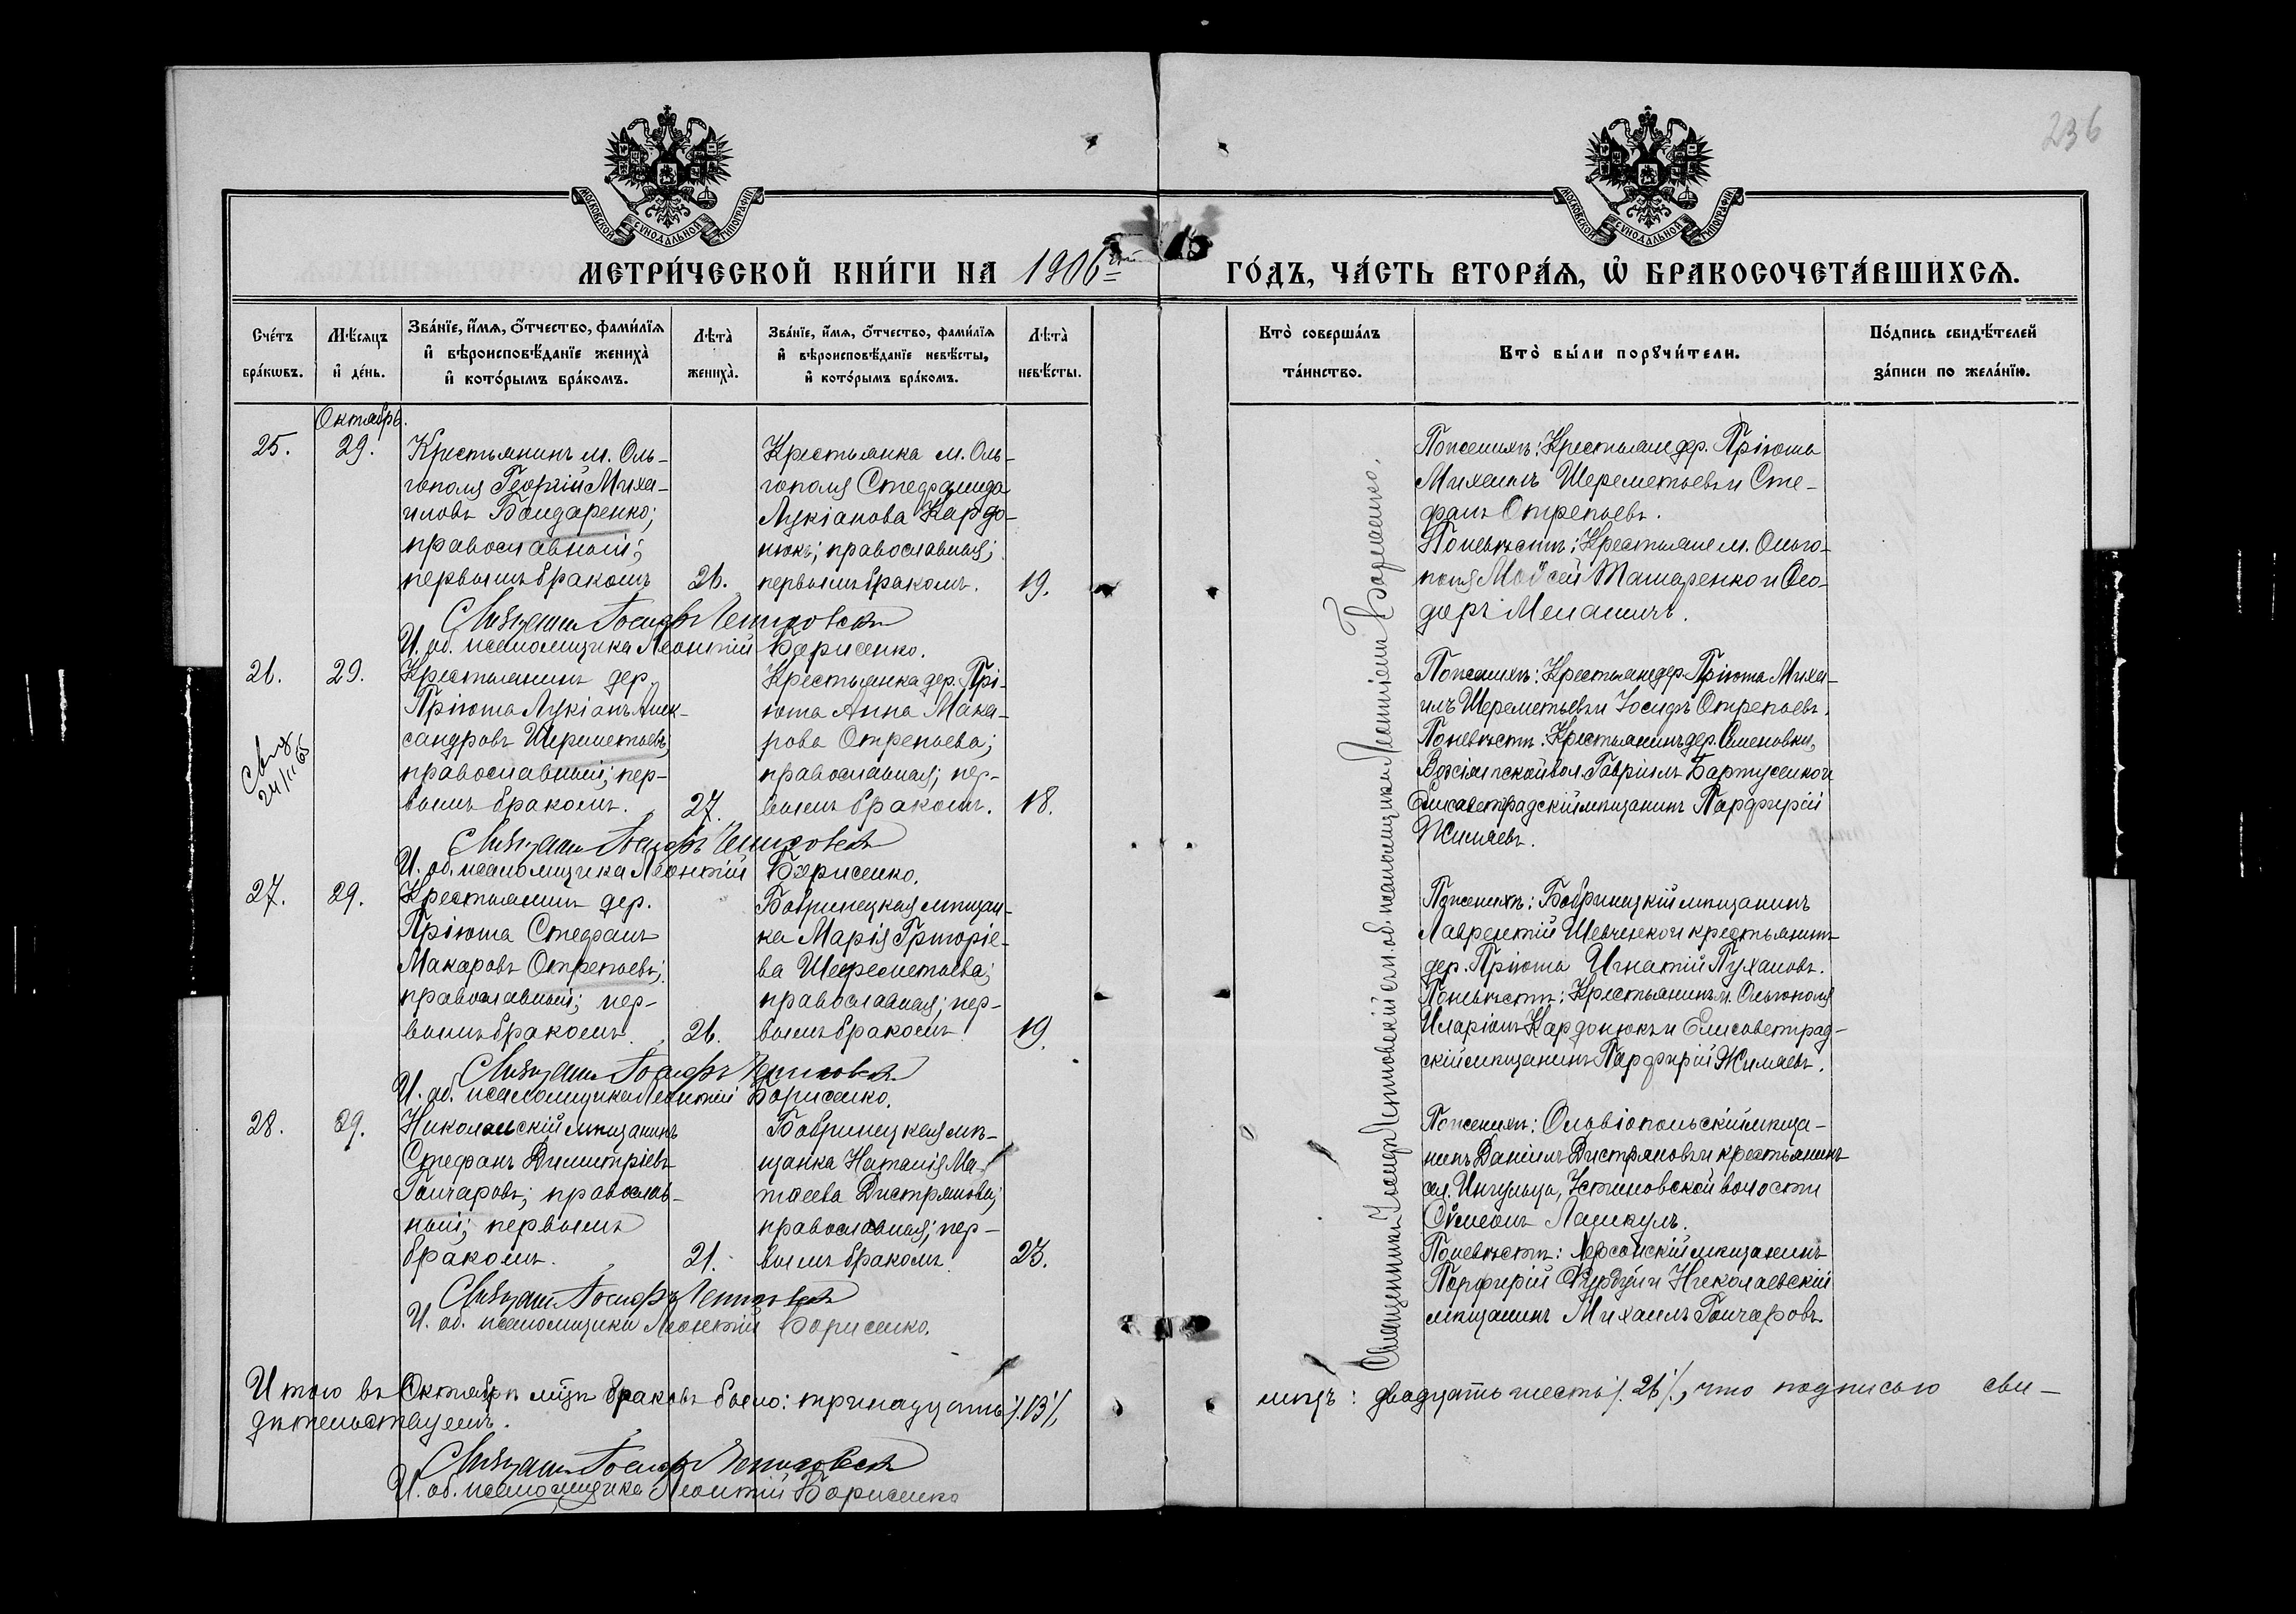 236
МОСКОВСКОЙ СѴНОДАЛЬНОЙ ТИПОГРАФІИ
МОСКОВСКОЙ СѴНОДАЛЬНОЙ ТИПОГРАФІИ
МЕТРИ́ЧЕСКОЙ КНИ́ГИ НА 1906 ГО́ДЪ, ЧА́СТЬ ВТОРА́Ѧ, Ѡ҆ БРАКОСОЧЕТА́ВШИХСѦ.
Сче́тъ бра́кѡвъ.
Мѣ́сяцъ и҆ де́нь.
Зва́нїе, и҆́мѧ, ѻ҆́тчество, фами́лїѧ и҆ вѣроисповѣ́данїе жениха̀ и҆ кото́рымъ бра́комъ.
Лѣта̀ жениха̀.
Зва́нїе, и҆́мѧ, ѻ҆́тчество, фами́лїѧ и҆ вѣроисповѣ́данїе невѣ́сты, и҆ кото́рымъ бра́комъ.
Лѣта̀ невѣ́сты.
Кто̀ соверша́лъ та́инство.
Кто̀ бы́ли порꙋчи́тели.
По́дпись свидѣ́телей за́писи по жела́нїю.
Октябрь.
25.
29.
Крестьянинъ м. Оль-
гополя Георгій Миха-
иловъ Бондаренко;
православный;
первымъ бракомъ
26.
Крестьянка м. Оль-
гополя Стефанида
Лукіанова Кардо-
нюкъ; православная;
первымъ бракомъ.
19.
По женихѣ: Крестьяне дер. Пріюта
Михаилъ Шереметьевъ и Сте-
фанъ Отрепьевъ.
По невѣстѣ: Крестьяне м. Ольго-
поля Моѵсей Ташаренко и Ѳео-
доръ Меланичъ.
Священникъ Іосифъ
И. об. псаломщика Леонтій Борисенко.
26.
29.
Крестьянинъ дер.
Пріюта Лукіанъ Алек-
сандровъ Шереметьевъ;
православный; пер-
вымъ бракомъ.
27.
Крестьянка дер. Прі-
юта Анна Мака-
рова Отрепьева;
православная; пер-
вымъ бракомъ.
18.
По женихѣ: Крестьяне дер. Пріюта Миха-
илъ Шереметьевъ и Іосифъ Отрепьевъ.
По невѣстѣ: Крестьянинъ дер. Семеновки,
вол. Гавріилъ и
Елисаветградскій мѣщанинъ Парфирій
Жиляевъ.
24/II 65
Священникъ Іосифъ
И. об. псаломщика Леонтій Борисенко.
27.
29.
Крестьянинъ дер.
Пріюта Стефанъ
Макаровъ Отрепьевъ;
православный; пер-
вымъ бракомъ.
26.
Бобринецкая мѣщан-
ка Марія Григоріе-
ва Шереметьева;
православная; пер-
вымъ бракомъ
19.
По женихѣ: Бобринецкій мѣщанинъ
Лаврентій Шевченко и крестьянинъ
дер. Пріюта Игнатій Пухановъ.
По невѣстѣ: Крестьянинъ м. Ольгополя
Иларіонъ Кардонюкъ и Елисаветград-
скій мѣщанинъ Парфирій Жиляевъ.
Священникъ Іосифъ
И. об. псаломщика Леонтій Борисенко.
28.
29.
Николаевскій мѣщанинъ
Стефанъ Димитріевъ
Гончаровъ; православ-
ный; первымъ
бракомъ.
21.
Бобринецкая мѣ-
щанка Наталія Ма-
тѳеева Дистрянова;
православная; пер-
вымъ бракомъ.
23.
По женихѣ: Ольвіопольскій мѣща-
нинъ Даніилъ Дистряновъ и крестьянинъ
сел. Ингульца, Устиновской волости
Сѵмеонъ Лашкулъ.
По невѣстѣ: Херсонскій мѣщанинъ
Порфирій и Николаевскій
мѣщанинъ Михаилъ Гончаровъ.
Священникъ Іосифъ
И. об. псаломщика Леонтій Борисенко.
Священникъ Іосифъ съ и. об. псаломщика Леонтіемъ Борисенко.
Итого въ Октябрѣ мѣцѣ браковъ было: тринадцать /.13/., лицъ: двадцать шесть /.26/., что подписью сви-
дѣтельствуемъ.
Священникъ Іосифъ
И. об. псаломщика Леонтій Борисенко